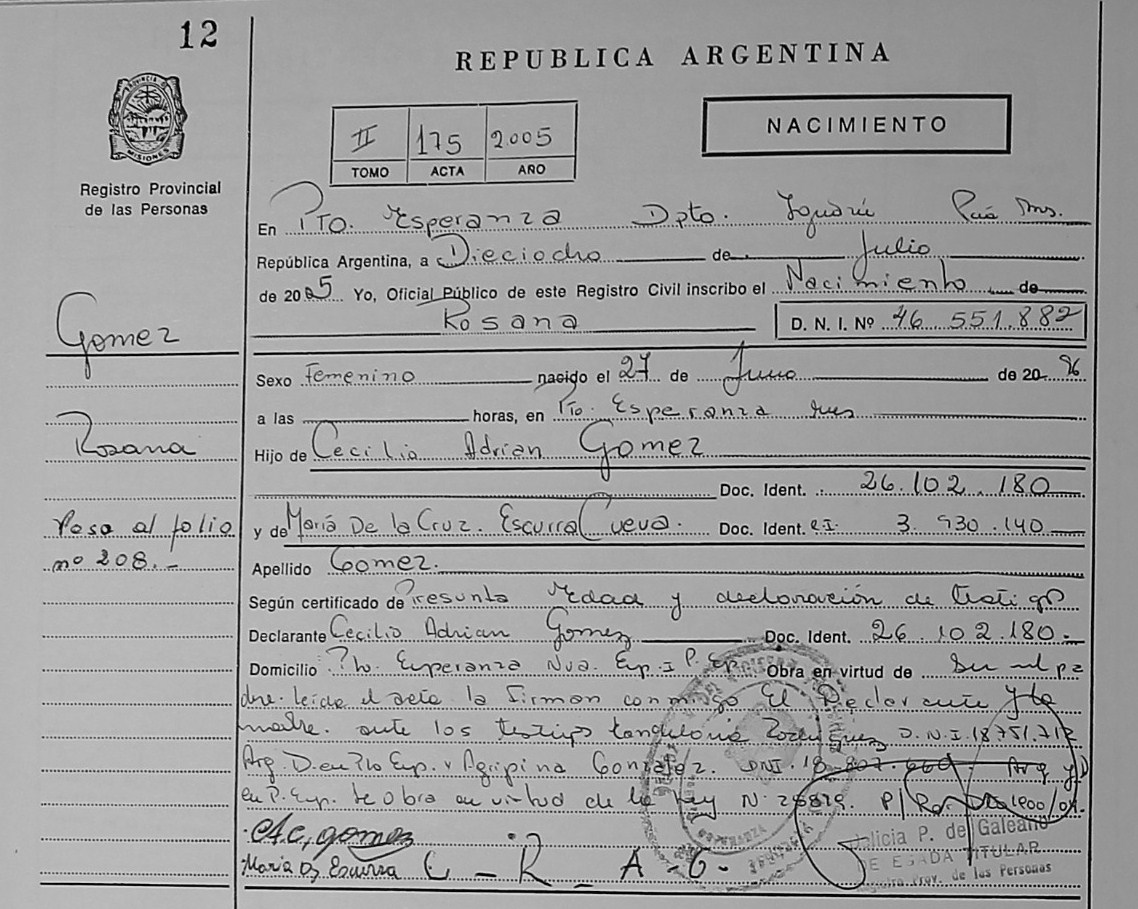 12
REPUBLICA ARGENTINA
PROVINCIA DE MISIONES
Registro Provincial
de las Personas
II 175 2.005
TOMO ACTA AÑO
NACIMIENTO
En PTO. Esperanza Dpto. Iguazú Mns.
República Argentina, a Dieciocho de Julio
de 2005 Yo, Oficial Público de este Registro Civil inscribo el Nacimiento de
Rosana D. N. I. Nº 46 551.882
Gomez
Rosana
Pasa al folio
nº 208.-
Sexo Femenino nacido el 27 de Junio de 20 96
a las horas, en Pto. Esperanza
Hijo de Cecilio Adrian Gomez
Doc. Ident. 26.102.180
y de María De la Cruz. Escurra Cueva. Doc. Ident. C.I. 3.930.140
Apellido Gomez.
Según certificado de Presunta Edad y declaración de testigo
Declarante Cecilio Adrian Gomez Doc. Ident. 26 102.180.-
Domicilio Pto. Esperanza Obra en virtud de Ser el pa
dre. leida el acta la firman conmigo El Declarante y la
madre. ante los testigos D.N.I. 18.751.712
Arg. Agripina Gonzalez. DNI. 18.807.660 Arg y D
en P. Esp. Obra en virtud de la Ley Nº
C.A.C. gomez
Maria Escurra C - R - A - G -
Alicia P. de Galeano
DELEGADA TITULAR
Registro Prov. de las Personas